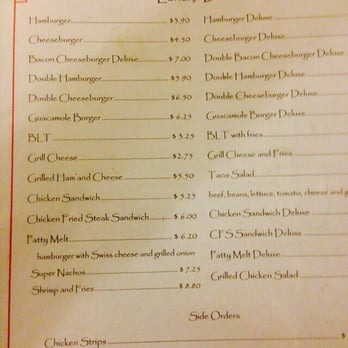 Hamburger $3.90
Cheeseburger $4.50
Bacon Cheeseburger Deluxe $7.00
Double Hamburger $5.90
Double Cheeseburger $6.50
Guacamole Burger $6.25
BLT $5.25
Grill Cheese $2.75
Grilled Ham and Cheese $5.50
Chicken Sandwich $5.25
Chicken Fried Steak Sandwich $6.00
Patty Melt $6.20
hamburger with Swiss cheese and grilled onion
Super Nachos $7.25
Shrimp and Fries $8.80
Hamburger Deluxe
Cheeseburger Deluxe
Double Bacon Cheeseburger Deluxe
Double Hamburger Deluxe
Double Cheeseburger Deluxe
Guacamole Burger Deluxe
BLT with fries
Grill Cheese and Fries
Taco Salad
beef, beans, lettuce, tomato, cheese and
Chicken Sandwich Deluxe
CFS Sandwich Deluxe
Patty Melt Deluxe
Grilled Chicken Salad
Side Orders
Chicken Strips $